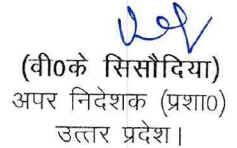 (वी0के सिसौदिया)
अपर निदेशक (प्रशा0)
उत्तर प्रदेश।